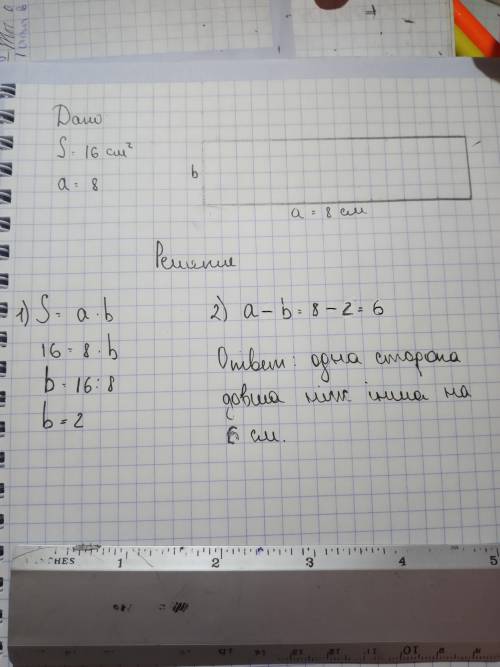 Дано
S = 16 см²
a = 8
b
a = 8 см
Решение
1) S = a · b
16 = 8 · b
b = 16 : 8
b = 2
2) a - b = 8 - 2 = 6
Ответ: одна сторона
довша ніж інша на
6 см.
CHES 1 2 3 4 5